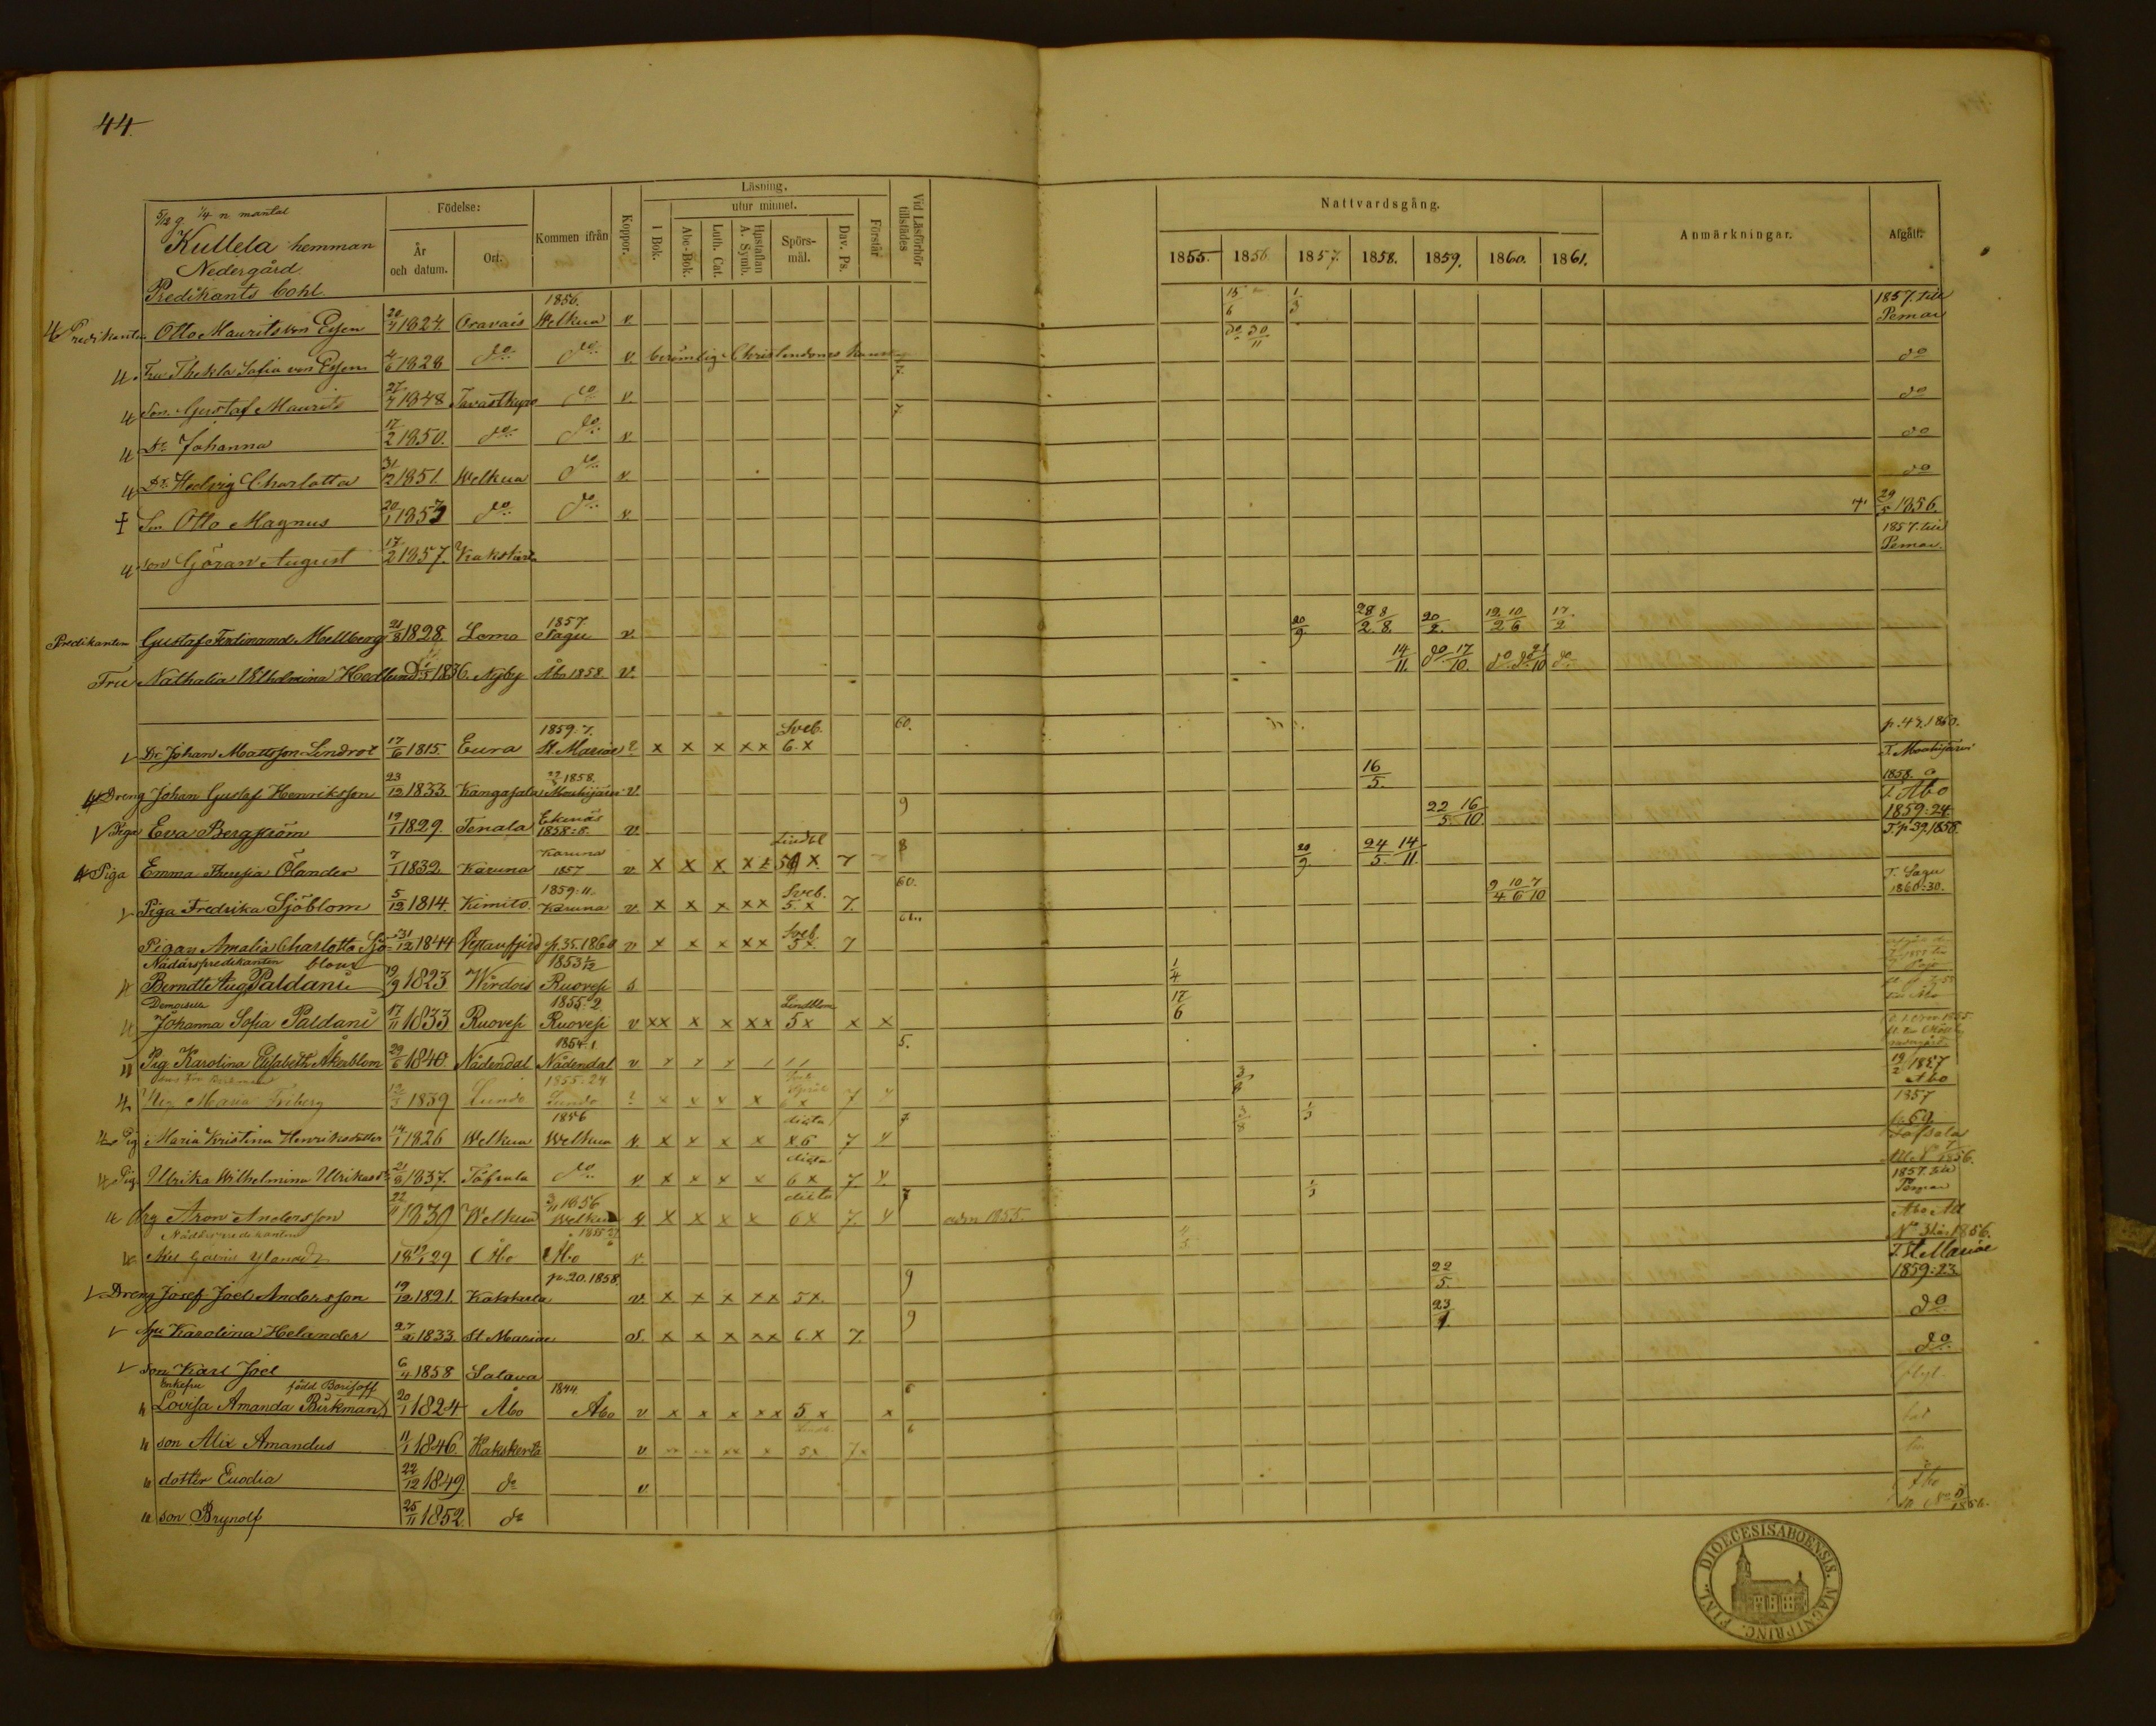 44.
5/12 g 1/4 n mantal
Kullela hemman
Nedergård
Predikants bohl.
Födelse:
År och datum.
Ort.
Kommen ifrån
Koppor.
Läsning.
I Bok.
utur minnet.
Abc-Bok.
Luth. Cat.
Hustaflan A. Symb.
Spörs-mål.
Dav. Ps.
Förstår
Vid Läsförhör tillstädes
Nattvardsgång.
1855. 1856. 1857. 1858. 1859. 1860. 1861.
Anmärkningar.
Afgått.
Predikanten Otto Maurits von Essen 20/7 1824. Oravais 1856. Welkua v. 15/6 1/3 1857. till Pemar
Fru Thekla Sofia von Essen 4/6 1828 do do v. berömlig Christendoms kunsk do 30/11 do
Son Gustaf Maurits 27/7 1848 Tavastkyro do v. 7. do
Dr. Johanna 17/2 1850. do do v. do
Dr. Hedvig Charlotta 31/12 1851. Welkua do v. do
Son Otto Magnus 20/1 1853 do do v. 29/5 1856.
son Göran August 17/2 1857. Kakskerta 1857. till Pemar.
Predikanten Gustaf Ferdinand Mellberg 21/8 1828. Lomo 1857 Sagu v. 20/9 28/2 8/8 20/2 19/2 10/6 17/2
Fru Nathalia Vilhelmina Hedlund 1836. Nyby Åbo 1858. v. 14/11. do 17/10. do do 21/10 do
Dr. Johan Mattsson Lindros 17/6 1815. Eura 1859. 7. St. Mariæ ? x x x x x Sveb. 6. x 60. p. 47. 1860.
Dreng Johan Gustaf Henriksson 23/12 1833. Kangasala 1858. Mouhijärvi v. 16/5. T. Mouhijärvi 1858.
Piga Eva Bergström 19/1 1829. Tenala Ekenäs 1858:8. v. 9 22/5. 16/10 T. Åbo 1859:24.
Piga Emma Theresia Ölander 7/1 1832. Karuna Karuna 1857 v. x x x x x Lindbl 5 x 7 8 20/9. 24/5. 14/11. T. p 39. 1858.
Piga Fredrika Sjöblom 5/12 1814. Kimito. 1859:11. Karuna v. x x x x x Sveb. 5. x 7. 60. 9/4 10/6 7/10 T. Sagu 1860:30.
Pigan Amalia Charlotta Sjöblom 31/12 1844 Vestanfjerd p. 35. 1860 v x x x x x Sveb. 5 x. 7 61.
Nådårspredikanten
Berndt Aug. Paldani 19/9 1823 Wirdois 1853 1/12 Ruovesi s. 1/4
Demoiselle
Johanna Sofia Paldani 17/11 1833 Ruovesi 1855:2 Ruovesi v x x x x x x Lindblom 5 x x x 17/6
Pig. Karolina Elisabeth Åkerblom 29/6 1840. Nådendal 1854:1. Nådendal v. 5.
Pig Maria Friberg 1839 Lundo 1855:24 Lundo ? x x x x 6 x 7 3/8 19/2 1857 Åbo
Pig. Maria Kristina Henriksdotter 14/1 1826 Welkua 1856 Welkua v. x x x x dicta x 6 7 7 3/8 1/3 1857
Pig Ulrika Wilhelmina Ulriksdr 21/8 1837. Töfsala do v x x x x dicta 6 x 7. Töfsala 1856.
Drg Aron Andersson 22/11 1839 Welkua 3/11 1856 Welkua x x x x dicta 6 x 7. 7 adm 1855. 1/3 1857 till Pemar
Nådårspredikanten
Axel Gabriel Ylander 18 12/1 29 Åbo 1855 Åbo v. Åbo 1856.
Dreng Josef Joel Andersson 19/12 1821. Kakskerta p. 20. 1858. v. x x x x x 5 x. 9 22/5. T. St Mariæ 1859:23.
Hu Karolina Helander 27/2 1833. St. Mariæ s. x x x x x 6. x 7. 9 23/1. do
Son Karl Joel 6/4 1858 Salava do
Enkefru född Borisoff
Lovisa Amanda Birkman 20/1 1824 Åbo 1844. Åbo v x x x x x 5. x x 6
son Alix Amandus 11/1 1846. Kakskerta v. 5 x 7 x 6
dotter Euodia 22/12 1849. do v
son Brynolf 25/11 1852. do
FINL. DIOECESIS ABOENSIS. MAGNI PRINC.